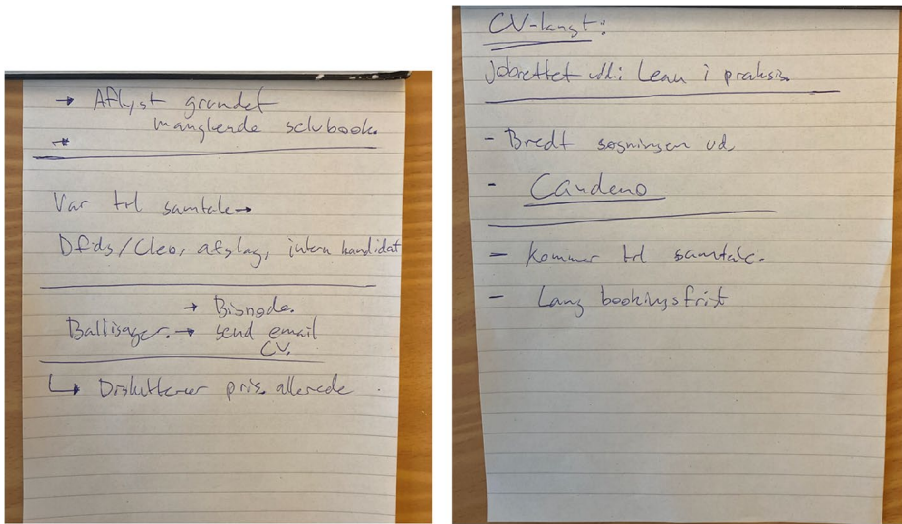 → Aflyst grundet
manglende selvbook.
→
Var til samtale →
Dfds/Cleo, afslag, intern kandidat
→ Bisnode.
Ballisager. → send email
CV.
↳ Diskutterer pris allerede.
CV-langt:
Jobrettet udd: Lean i praksis
- Bredt søgningen ud
- Candeno
- kommer til samtale.
- Lang bookingsfrist